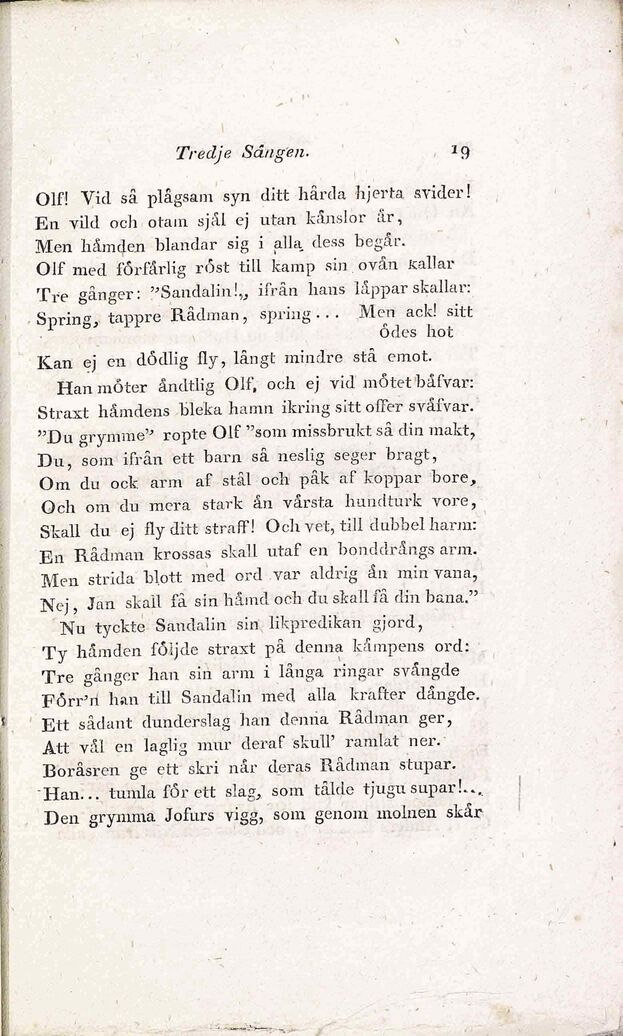 Tredje Sången. 19
Olf! Vid så plågsam syn ditt hårda hjerta svider!
En vild och otam själ ej utan känslor är,
Men hämden blandar sig i alla dess begär.
Olf med förfärlig röst till kamp sin ovän kallar
Tre gånger: ”Sandalin!„ ifrån hans läppar skallar:
Spring, tappre Rådman, spring... Men ack! sitt
ödes hot
Kan ej en dödlig fly, långt mindre stå emot.
Han möter ändtlig Olf, och ej vid mötet bäfvar:
Straxt hämdens bleka hamn ikring sitt offer sväfvar.
”Du grymme” ropte Olf ”som missbrukt så din makt,
Du, som ifrån ett barn så neslig seger bragt,
Om du ock arm af stål och påk af koppar bore,
Och om du mera stark än värsta hundturk vore,
Skall du ej fly ditt straff! Och vet, till dubbel harm:
En Rådman krossas skall utaf en bonddrängs arm.
Men strida blott med ord var aldrig än min vana,
Nej, Jan skall få sin hämd och du skall få din bana.”
Nu tyckte Sandalin sin likpredikan gjord,
Ty hämden följde straxt på denna kämpens ord:
Tre gånger han sin arm i långa ringar svängde
Förr'n han till Sandalin med alla krafter dängde.
Ett sådant dunderslag han denna Rådman ger,
Att väl en laglig mur deraf skull' ramlat ner.
Boråsren ge ett skri når deras Rådman stupar.
Han... tumla för ett slag, som tålde tjugu supar!...
Den grymma Jofurs vigg, som genom molnen skär